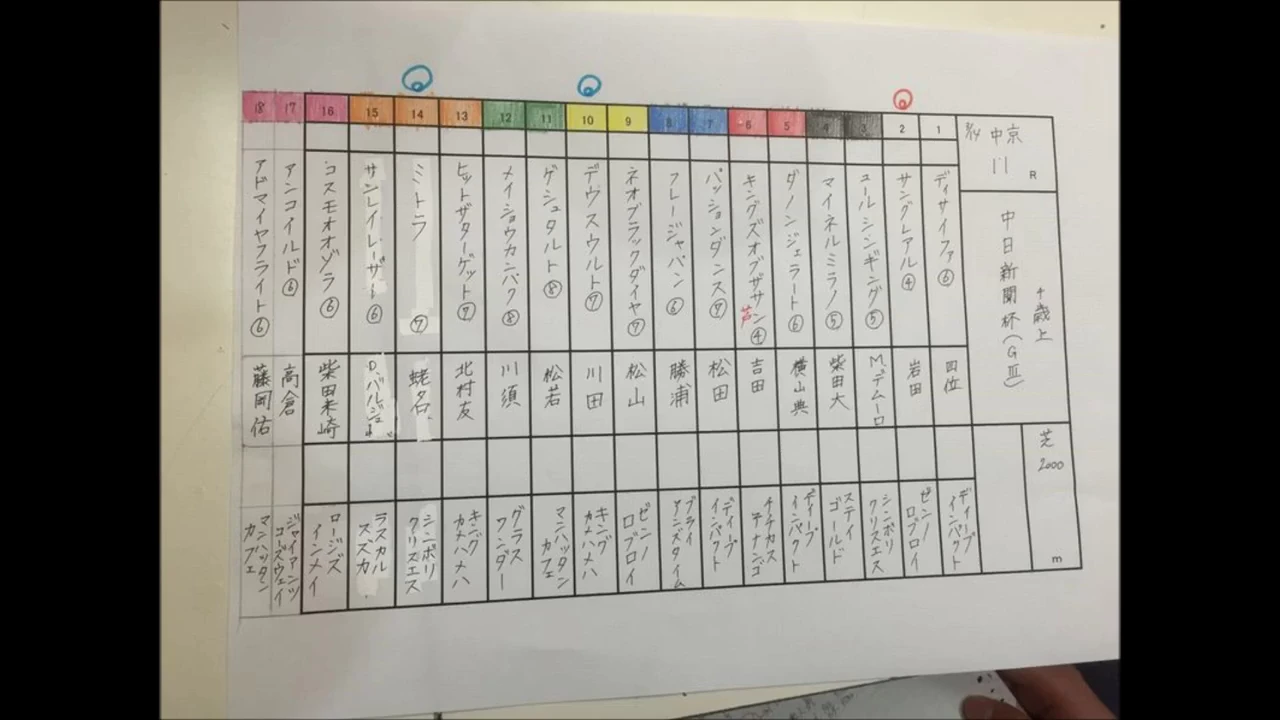 3/14 中京
11 R
中日新聞杯(GⅢ)
4歳上
芝
2000
m
1
ディサイファ⑥
四位
ディープ
インパクト
2
サングレアル④
岩田
ゼンノ
ロブロイ
3
ユールシンギング⑤
M.デムーロ
シンボリ
クリスエス
4
マイネルミラノ⑤
柴田大
ステイ
ゴールド
5
ダノンジェラート⑥
横山典
ディープ
インパクト
6
キングズオブザサン④
芦
吉田
チチカス
テナンゴ
7
パッションダンス⑦
松田
ディープ
インパクト
8
フレージャパン⑥
勝浦
ブライ
アンズタイム
9
ネオブラックダイヤ⑦
松山
ゼンノ
ロブロイ
10
デウスウルト⑦
川田
キング
カメハメハ
11
ゲシュタルト⑧
松若
マンハッタン
カフェ
12
メイショウカンパク⑧
川須
グラス
ワンダー
13
ヒットザターゲット⑦
北村友
キング
カメハメハ
14
ミトラ⑦
蛯名
シンボリ
クリスエス
15
サンレイレーザー⑥
D.バルジュー
ラスカル
スズカ
16
コスモオオゾラ⑥
柴田未崎
ロージズ
インメイ
17
アンコイルド⑥
高倉
ジャイアンツ
コーズウェイ
18
アドマイヤフライト⑥
藤岡佑
マンハッタン
カフェ